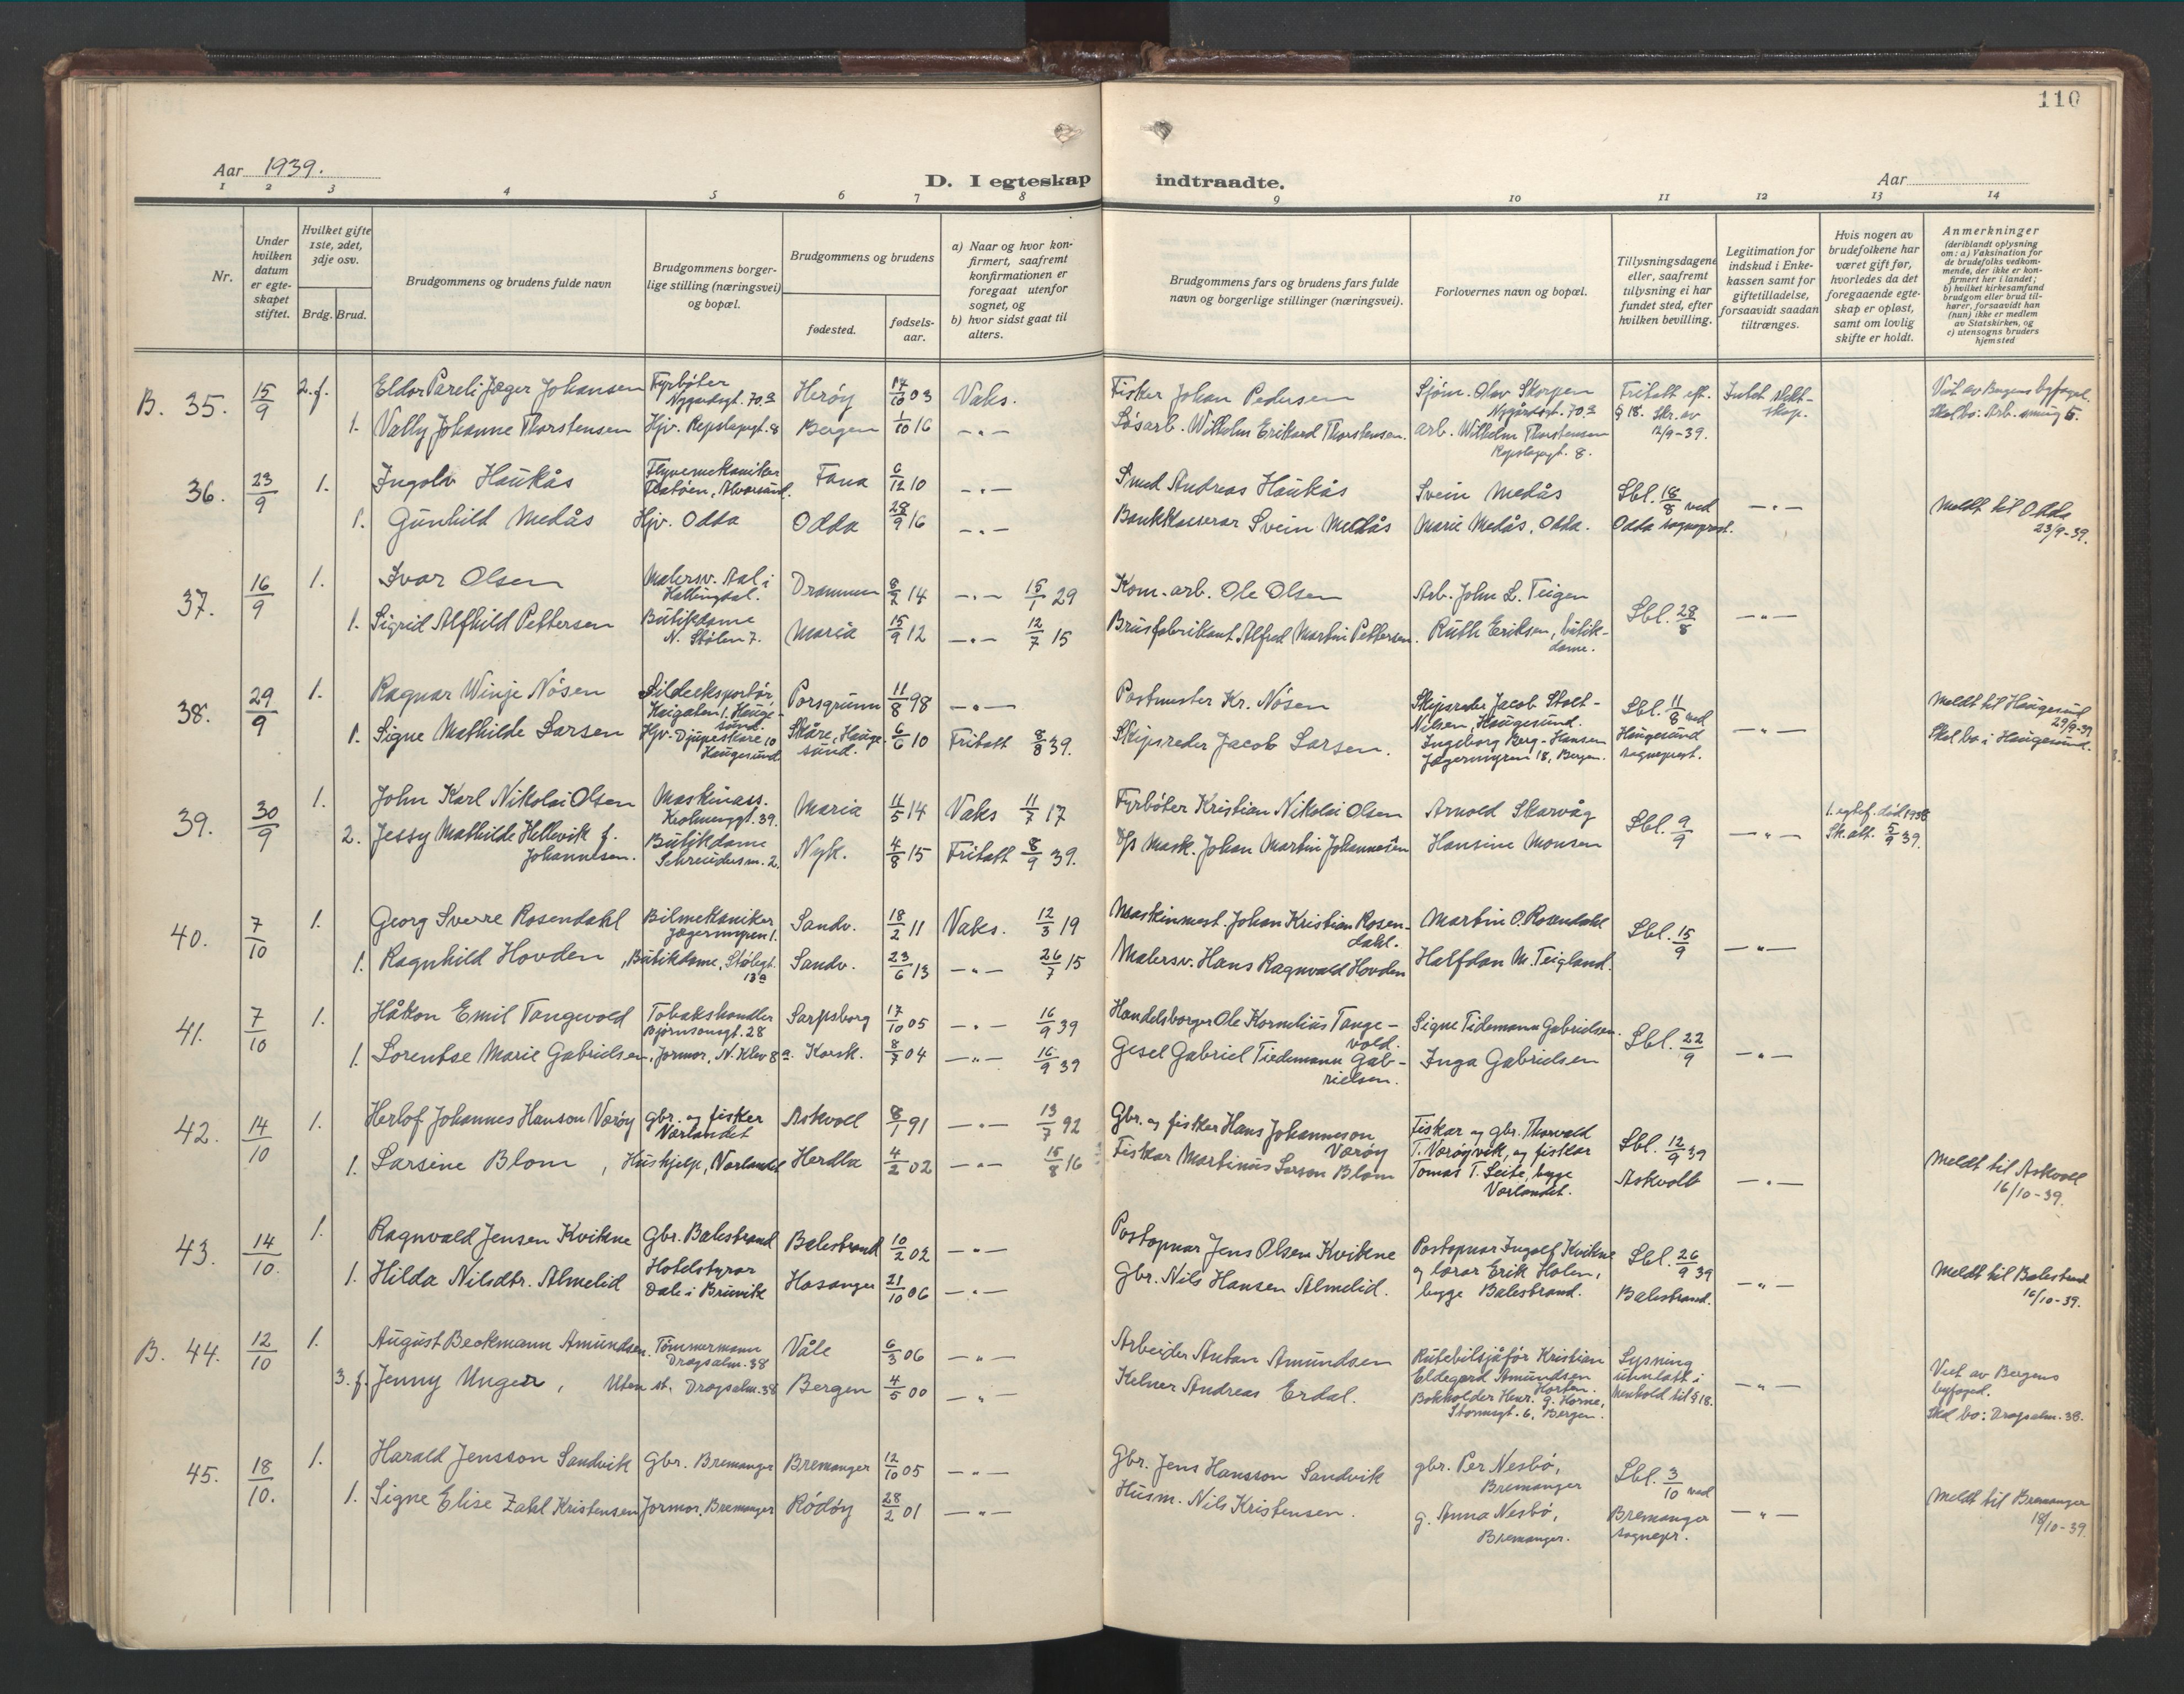 110
Aar 1939.
D. I egteskap indtraadte.
Aar
1 2 3 4 5 6 7 8 9 10 11 12 13 14
Nr.
Under hvilken datum er egteskapet stiftet.
Hvilket gifte 1ste, 2det, 3dje osv.
Brdg. Brud.
Brudgommens og brudens fulde navn
Brudgommens borgerlige stilling (næringsvei) og bopæl.
Brudgommens og brudens
fødested.
fødselsaar.
a) Naar og hvor konfirmert, saafremt konfirmationen er foregaat utenfor sognet, og
b) hvor sidst gaat til alters.
Brudgommens fars og brudens fars fulde navn og borgerlige stillinger (næringsvei).
Forlovernes navn og bopæl.
Tillysningsdagene eller, saafremt tillysning ei har fundet sted, efter hvilken bevilling.
Legitimation for indskud i Enkekassen samt for giftetilladelse, forsaavidt saadan tiltrænges.
Hvis nogen av brudefolkene har været gift før, hvorledes da det foregaaende egteskap er opløst, samt om lovlig skifte er holdt.
Anmerkninger
(deriblandt oplysning om: a) Vaksination for de brudefolks vedkommende, der ikke er konfirmert her i landet; b) hvilket kirkesamfund brudgom eller brud tilhører, forsaavidt han (hun) ikke er medlem av Statskirken, og c) utensogns bruders hjemsted
B. 35. 15/9 2. f. Eldor Pareli Jæger Johansen Fyrbøter Nygårdsgt. 70a Herøy 14/10 03 Vaks. Fisker Johan Pedersen Sjøm. Olav Skorpen Nygårdsgt. 70a Fritatt eft. § 18. Skr. av 12/9-39. Intet slektskap. Viet av Bergens byfoged.
1. Vally Johanne Thorstensen Hjv. Repslagergt. 8 Bergen 1/10 16 —"— Løsarb. Wilhelm Erikard Thorstensen. Arb. Wilhelm Thorstensen Repslagergt. 8.
36. 23/9 1. Ingolv Haukås Flyvemekaniker Flatøen, Alversund. Fana 6/12 10 —"— Smed Andreas Haukås Svein Medås Lbl. 18/8 ved —"— Meldt til Odda 23/9-39.
1. Gunhild Medås Hjv. Odda Odda 28/9 16 —"— Bankkasserar Svein Medås Marie Medås, Odda. Odda sogneprest.
37. 16/9 1. Ivar Olsen Malersv. Aal i Hallingdal. Drammen 8/2 14 —"— 15/1 29 Kom. arb. Ole Olsen Arb. John L. Teigen Lbl. 28/8 —"—
1. Sigrid Alfhild Pettersen Butikdame N. Stølen 7. Maria 15/9 12 —"— 12/7 15 Brusfabrikant Alfred Martin Pettersen. Ruth Eriksen, butikdame.
38. 29/9 1. Ragnar Winje Nösen Sildeeksportör, Haigaten 1. Haugesund. Porsgrunn 11/8 98 —"— Postmester Kr. Nösen Skipsreder Jacob Stolt-Nilsen, Haugesund. Lbl. 11/8 ved Haugesund sogneprest. —"— Meldt til Haugesund 29/9-39
1. Signe Mathilde Larsen Hjv. Djupaskare 10 Haugesund Skåre, Haugesund. 6/6 10 Fritatt 8/8 39. Skipsreder Jacob Larsen. Ingeborg Berg-Hansen Jægermyren 18, Bergen. Skal bo i Haugesund.
39. 30/9 1. John Karl Nikolai Olsen Maskinass. Maria 11/5 14 Vaks 11/7 17 Fyrbøter Kristian Nikolai Olsen Arnold Skarvåg Lbl. 9/9 —"— 1. egtef. död 1938
2. Jessy Mathilde Hellevik f. Johannesen. Butikdame Schreudersm. 2. Nyk. 4/8 15 Fritatt 8/9 39. D/s Mask. Johan Martin Johannesen Hansine Monsen Sk. att. 5/9 39.
40. 7/10 1. Georg Sverre Rosendahl Bilmekaniker Jægermyren 1. Sandv. 18/2 11 Vaks. 12/3 19 Maskinmest. Johan Kristian Rosendahl. Martin O. Rosendahl Lbl. 15/9 —"—
1. Ragnhild Hovden, Butikdame, Stølegt. 13a Sandv. 23/6 13 —"— 26/7 15 Malersv. Hans Ragnvald Hovden Halfdan M. Teigland.
41. 7/10 1. Håkon Emil Tangevold Tobakshandler Bjørnsonsgt. 28 Sarpsborg 17/10 05 —"— 16/9 39 Handelsborger Ole Kornelius Tangevold. Signe Tidemann Gabrielsen. Lbl. 22/9 —"—
1. Lorentse Marie Gabrielsen, Jormor, N. Klev 8a. Korsk. 8/7 04 —"— 16/9 39 Gesel Gabriel Tiedemann Gabrielsen. Inga Gabrielsen
42. 14/10 1. Herlof Johannes Hanson Værøy Gbr. og fisker Værlandet Askvoll 8/1 91 —"— 13/7 92 Gbr. og fisker Hans Johanneson Værøy Fiskar og gbr. Thorvald T. Værøyvik, og fiskar Lbl. 12/9 39 Askvoll —"— Meldt til Askvoll 16/10-39.
1. Larsine Blom, Hushjelp, Værlandet Herdla 4/2 02 —"— 15/8 16 Fiskar Martinus Larson Blom Tomas T. Leite, begge Værlandet.
43. 14/10. 1. Ragnvald Jensen Kvikne Gbr. Balestrand Balestrand 10/2 02 —"— Postopnar Jens Olsen Kvikne Postopnar Ingolf Kvikne og lærar Erik Holen, begge Balestrand. Lbl. 26/9 39 Balestrand. —"— Meldt til Balestrand 16/10-39.
1. Hilda Nilsdtr. Almelid Hotelstyrar Dale i Bruvik Hosanger 21/10 06 —"— Gbr. Nils Hansen Almelid.
B. 44. 12/10 1. August Beckmann Amundsen. Tømmermann Dragsalm. 38 Våle 6/3 06 —"— Arbeider Anton Amundsen Rutebilsjåför Kristian Eldegard Amundsen Horten. Lysning unnlatt i henhold til § 18. —"— Viet av Bergens byfoged.
3. f. Jenny Unger, Uten st. Dragsalm. 38 Bergen 4/5 00 —"— Kelner Andreas Erdal. Bokholder Henr. G. Horne, 6, Bergen. Skal bo: Dragsalm. 38.
45. 18/10. 1. Harald Jensson Sandvik Gbr. Bremanger Bremanger 12/10 05 —"— Gbr. Jens Hansson Sandvik gbr. Per Nesbö, Bremanger Lbl. 3/10 ved Bremanger sognepr. —"— Meldt til Bremanger 18/10-39.
1. Signe Elise Zahl Kristensen Jormor, Bremanger Rödöy 28/2 01 —"— Husm. Nils Kristensen. g. Anna Nesbö, Bremanger.